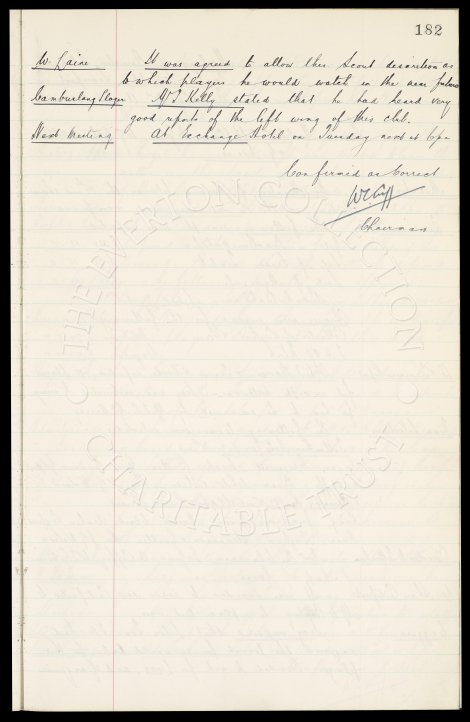 182
W. Laine It was agreed to allow this Scout descretion as
to which players he would watch in the near future
Cambuslang Player Mr J Kelly stated that he had heard very
good reports of the left wing of this club.
Next Meeting At Exchange Hotel on Tuesday next at 6pm
Confirmed as Correct
Chairman
THE EVERTON COLLECTION
CHARITABLE TRUST